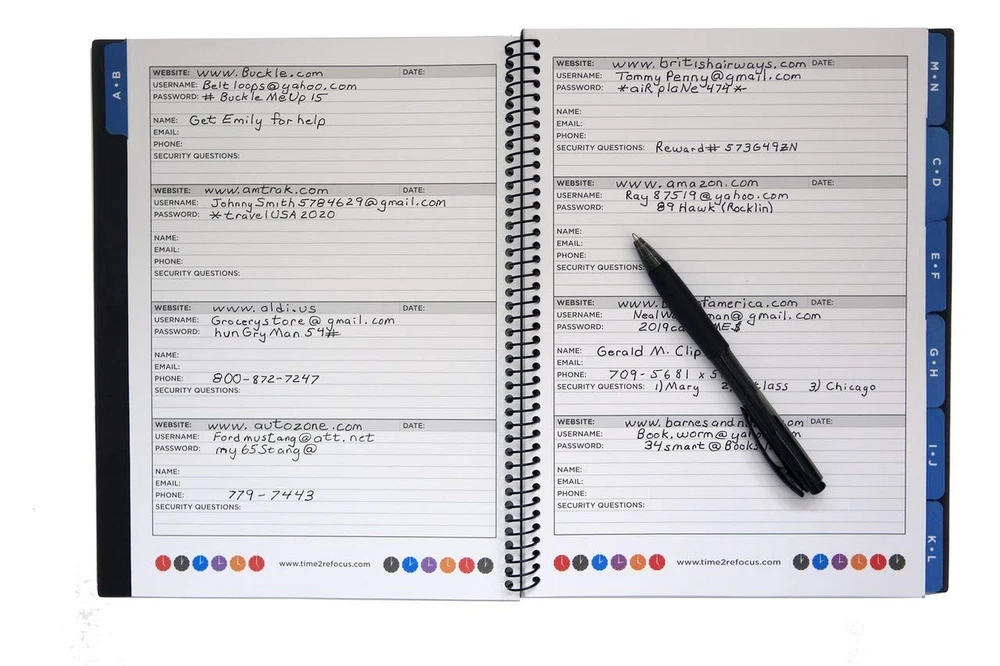 A • B
WEBSITE: www.Buckle.com DATE:
USERNAME: Belt loops@yahoo.com
PASSWORD: # BuckleMeUp 15
NAME: Get Emily for help
EMAIL:
PHONE:
SECURITY QUESTIONS:
WEBSITE: www.amtrak.com DATE:
USERNAME: JohnnySmith5784629@gmail.com
PASSWORD: *travelUSA2020
NAME:
EMAIL:
PHONE:
SECURITY QUESTIONS:
WEBSITE: www.aldi.us DATE:
USERNAME: Grocerystore@gmail.com
PASSWORD: hunGryMan 54#
NAME:
EMAIL:
PHONE: 800-872-7247
SECURITY QUESTIONS:
WEBSITE: www.autozone.com DATE:
USERNAME: Fordmustang@att.net
PASSWORD: my65Stang@
NAME:
EMAIL:
PHONE: 779-7443
SECURITY QUESTIONS:
www.time2refocus.com
WEBSITE: www.britishairways.com DATE:
USERNAME: TommyPenny@gmail.com
PASSWORD: *aiRplaNe 474*
NAME:
EMAIL:
PHONE:
SECURITY QUESTIONS: Reward# 573G49ZN
WEBSITE: www.amazon.com DATE:
USERNAME: Ray87519@yahoo.com
PASSWORD: 89 Hawk (Rocklin)
NAME:
EMAIL:
PHONE:
SECURITY QUESTIONS:
WEBSITE: www. famerica.com DATE:
USERNAME: Neal man@gmail.com
PASSWORD: 2019 ME$
NAME: Gerald M. Clip
EMAIL:
PHONE: 709-5681 x 5
SECURITY QUESTIONS: 1) Mary lass 3) Chicago
WEBSITE: www.barnesand om DATE:
USERNAME: Book.worm@yah m
PASSWORD: 34smart@Books
NAME:
EMAIL:
PHONE:
SECURITY QUESTIONS:
www.time2refocus.com
M • N
C • D
E • F
G • H
I • J
K • L